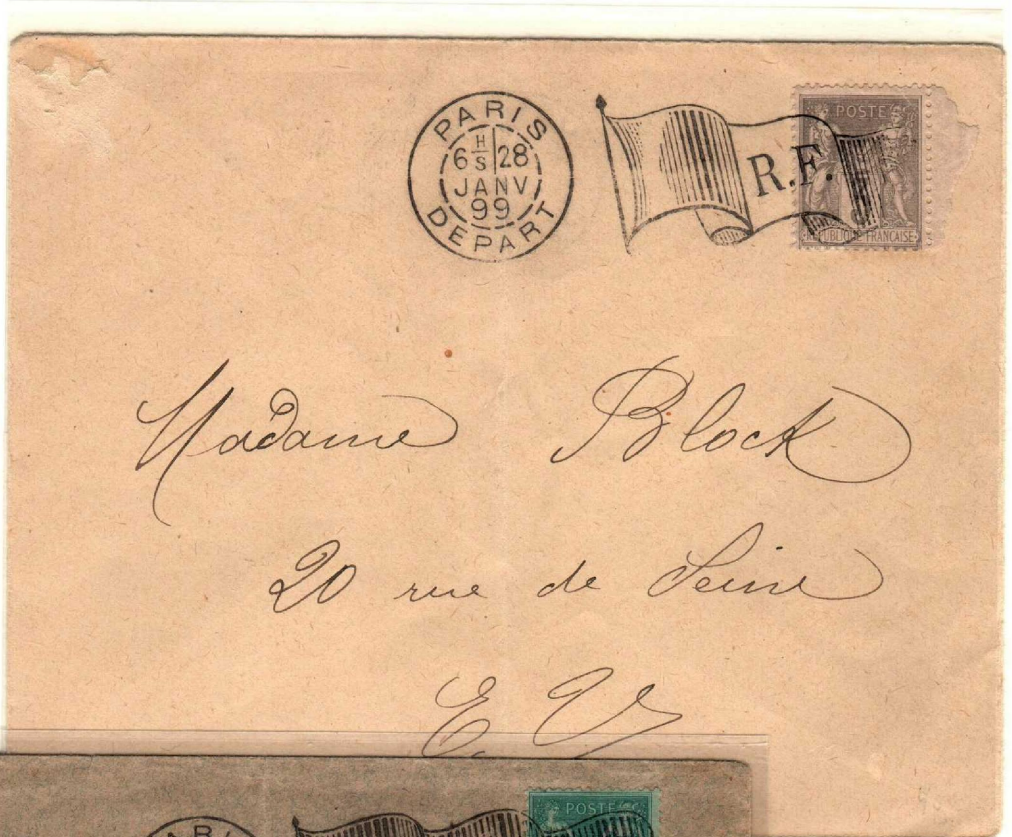 PARIS
6 H S 28
JANV
99
DEPART
R.F.
POSTE
REPUBLIQUE FRANCAISE
Madame Block
20 rue de Seine
E.V.
POSTE